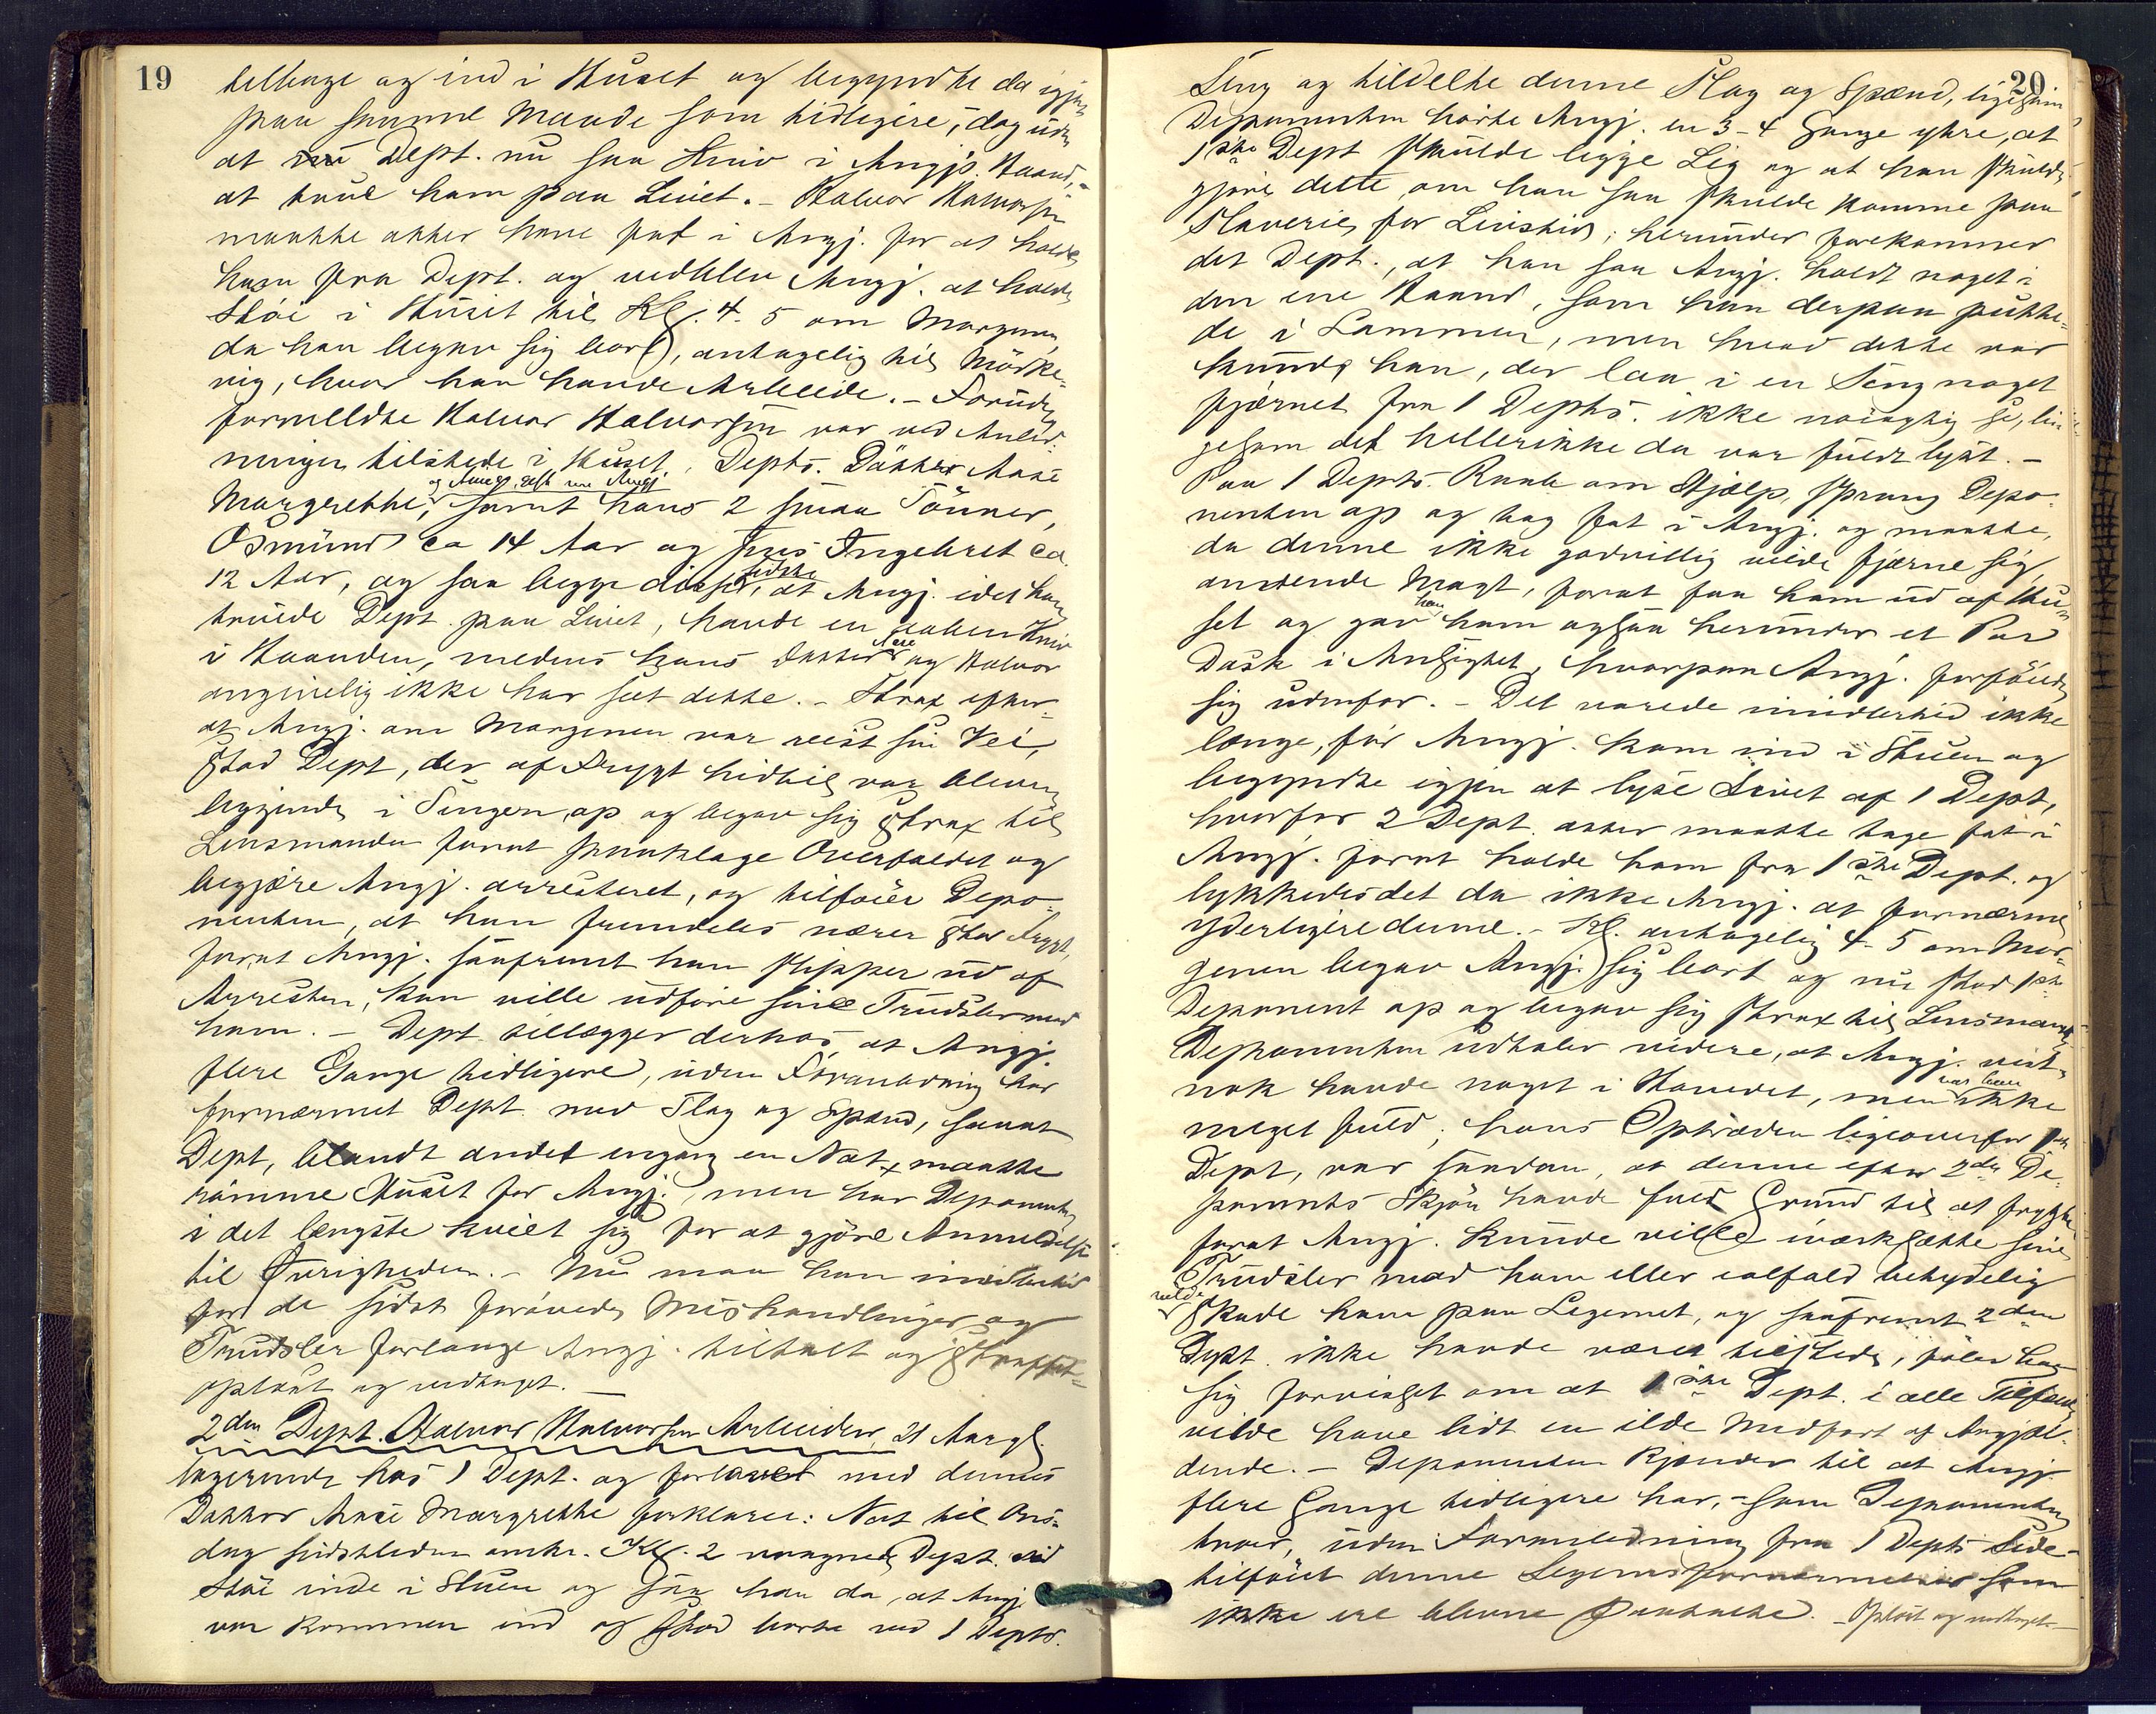 19
tilbage og ind i Huset og begyndte da igjen
paa samme Maade som tidligere, dog uden
at Dept. nu saa Kniv i Angjs. Haand,
at true ham paa Livet. – Halvor Halvorsen
maatte atter have fat i Angj. for at holde
ham fra Dept. og vedblev Angj. at holde
Støi i Huset til Kl. 4-5 om Morgenen,
da han begav sig bort, antagelig til Mörke-
vig, hvor han havde Arbeide. – Foruden
formeldte Halvor Halvorsen var ved Anled-
ningen tilstede i Huset, Depts. Datter Anne
Margrethe, samt hans 2 smaa Sönner,
Osmund ca 14 Aar og Jens Ingebret ca.
12 Aar, og saa begge disse sidste, at Angj. idet han
truede Dept. paa Livet, havde en aaben Kniv
i Haanden, medens hans Datter og Halvor
angivelig ikke har seet dette. – Strax efter
at Angj. om Morgenen var reist sin Vei,
stod Dept, der af Frygt hidtil var bleven
liggende i Sengen, op og begav sig strax til
Lensmanden forat paaklage Overfaldet og
begjære Angj. arresteret, og tilföier Depo-
nenten, at han fremdeles nærer stor Frygt,
forat Angj. saafremt han slipper ud af
Arresten, kan ville udføre sine Trudsler mod
ham. – Dept. tillægger derhos, at Angj.
flere Gange tidligere, uden Foranledning har
fornærmet Dept. med Slag og Spænd, samt
Dept, blandt andet engang en Nat, maatte
römme Huset for Angj., men har Deponenten
i det længste kviet sig for at gjöre Anmeldelse
til Øvrigheden. – Nu maa han imidlertid
for de sidst forövede Mishandlinger og
Trudsler forlange Angj. tiltalt og straffet.
oplæst og vedtaget. –
2den Dept. Halvor Halvorsen Arbeider, 21 Aar gl.
logerende hos 1 Dept. og forlovet med dennes
Datter Anne Margrethe forklarer: Nat til Ons-
dag sidstleden omtr. Kl. 2 vaagnede Dept. ved
Støi inde i Stuen og saa han da, at Angj.
var kommen ind og stod borte ved 1 Depts.
20
Seng og tildelte denne Slag og Spænd, ligesom
Deponenten hörte Angj. en 3-4 Gange ytre, at
1ste Dept skulde ligge Lig og at han skulde
gjöre dette om han saa skulde komme paa
Slaveriet for Livstid; herunder forekommer
det Dept., at han saa Angj. holdt noget i
den ene Haand, som han derpaa putte-
de i Lommen, men hvad dette var
kunde han, der laa i en Seng noget
fjernet fra 1 Depts. ikke nøiagtig se, li-
gesom det hellerikke da var fuldt lyst. –
Paa 1 Depts. Raab om Hjælp, sprang Depo-
nenten op og tog fat i Angj. og maatte,
da denne ikke godvillig vilde fjerne sig,
anvende Magt, forat faa ham ud af Hu-
set og gav han ham ogsaa herunder et Par
Dask i Ansigtet, hvorpaa Angj. forföiede
sig udenfor. – Det varede imidlertid ikke
længe, för Angj. kom ind i Stuen og
begyndte igjen at lyse Livet af 1 Dept,
hvorfor 2 Dept. atter maatte tage fat i
Angj. forat holde ham fra 1ste Dept. og
lykkedes det da ikke Angj. at fornærme
yderligere denne. – Kl. antagelig 4-5 om Mor-
genen begav Angj. sig bort og nu stod 1ste
Deponent op og begav sig strax til Lensmanden
Deponenten udtaler videre, at Angj. vist-
nok havde noget i Hovedet, men var han ikke
meget fuld; hans Optræden ligeoverfor 1ste
Dept, var saadan, at denne efter 2den De-
ponents Skjön havde fuld Grund til at frygte
forat Angj. kunde ville iværksætte sine
Trudsler mod ham eller ialfald betydelig
vilde skade ham paa Legemet, og saafremt 2den
Dept. ikke havde været tilstede, föler han
sig forvisset om at 1ste Dept. i alle Tilfælde
vilde have lidt en ilde Medfart af Angjæl-
dende. – Deponenten kjender til at Angj.
flere Gange tidligere har, – som Deponenten
tror, uden Foranledning fra 1 Depts Side –
tilföiet denne Legemsfornærmelser som
ikke ere blevne paatalte. – Oplæst og vedtaget. –